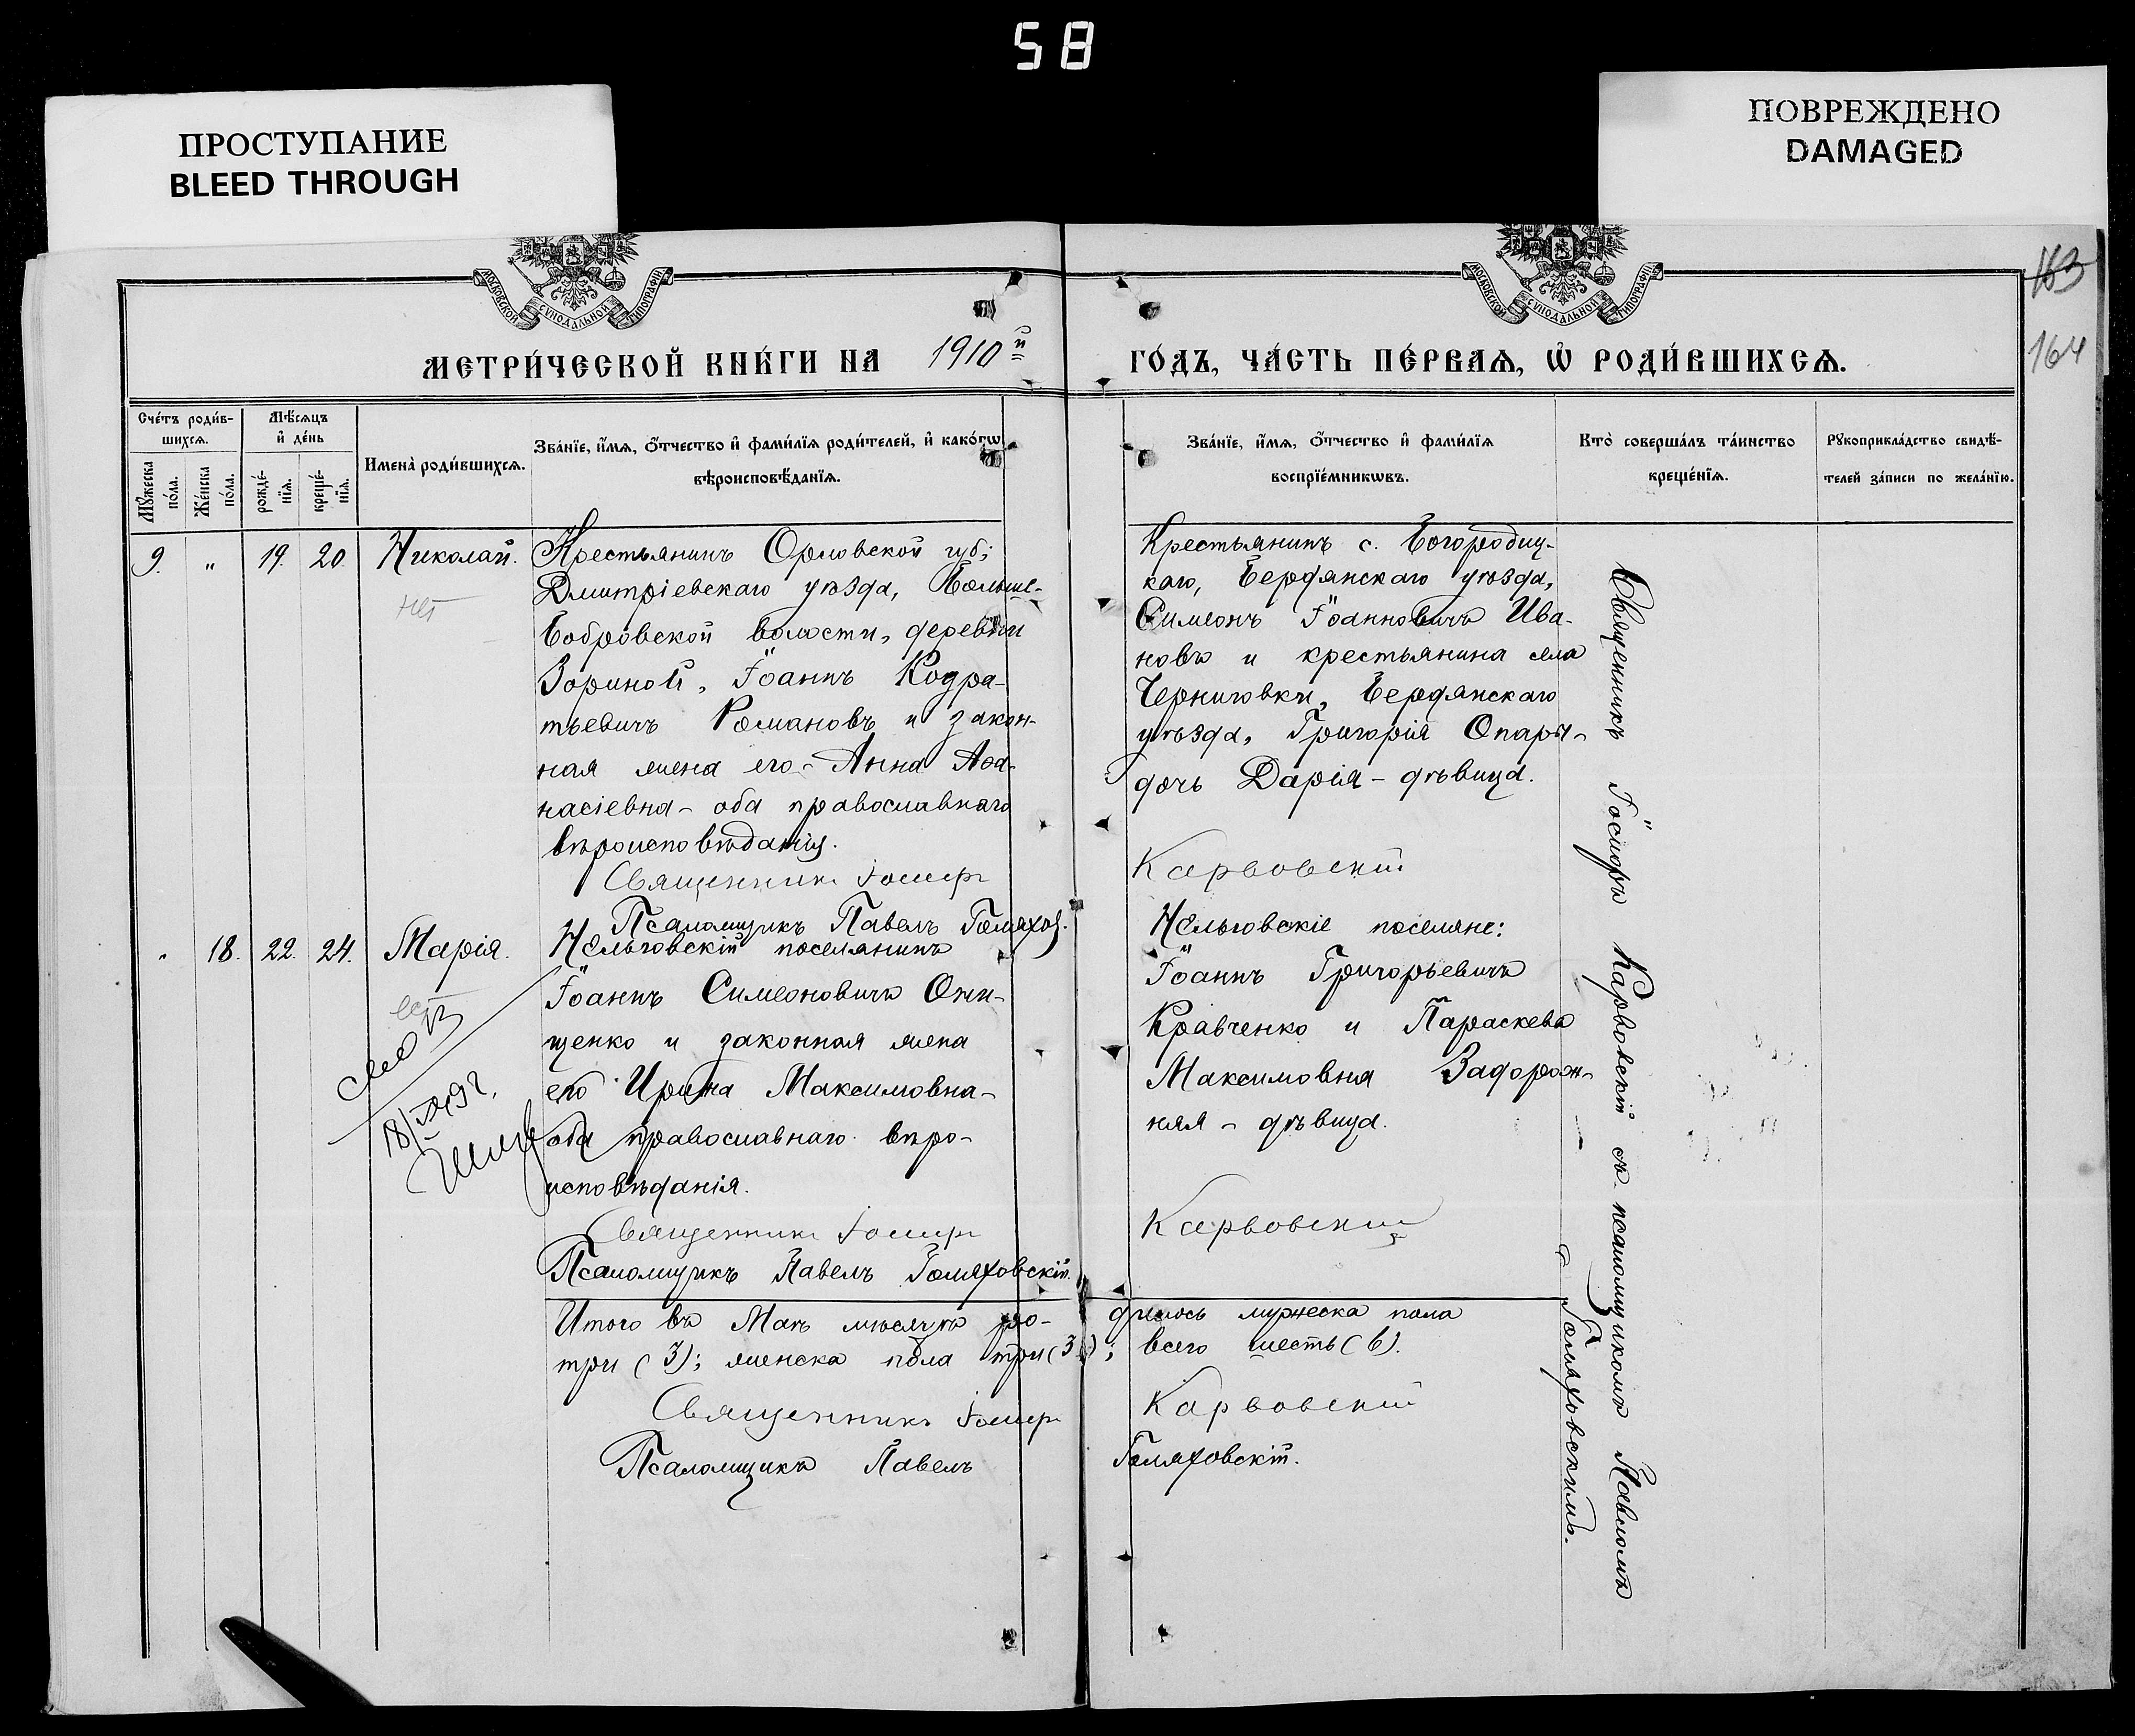 58
ПРОСТУПАНИЕ
BLEED THROUGH
ПОВРЕЖДЕНО
DAMAGED
МОСКОВСКОЙ СѴНОДАЛЬНОЙ ТИПОГРАФІИ
МОСКОВСКОЙ СѴНОДАЛЬНОЙ ТИПОГРАФІИ
163
164
МЕТРИ́ЧЕСКОЙ КНИ́ГИ НА 1910й
ГО́ДЪ, ЧА́СТЬ ПЕ́РВАѦ, Ѡ҆ РОДИ́ВШИХСѦ.
Сче́тъ роди́в-
шихсѧ.
Мꙋ́жеска по́ла.
Же́нска по́ла.
Мѣ́сѧцъ
и҆ де́нь
рожде́-нїѧ.
креще́-нїѧ.
Имена̀ роди́вшихсѧ.
Зва́нїе, и҆́мѧ, ѻ҆́тчество и҆ фами́лїѧ роди́телей, и҆ како́гѡ
вѣроисповѣ́данїѧ.
Зва́нїе, и҆́мѧ, ѻ҆́тчество и҆ фами́лїѧ
воспрїе́мникѡвъ.
Кто̀ соверша́лъ та́инство
креще́нїѧ.
Рꙋкоприкла́дство свидѣ́-
телей за́писи по жела́нїю.
9. " 19. 20. Николай.
нет
Крестьянинъ Орловской губ;
Дмитріевскаго уѣзда, Больше-
Бобровской волости, деревни
Зориной, Іоаннъ Кодра-
тьевичъ Романовъ и закон-
ная жена его - Анна Аѳа-
насіевна - оба православнаго
вѣроисповѣданія.
Священникъ Іосифъ
Псаломщикъ Павелъ Голяхов.
Крестьянинъ с. Богородиц-
каго, Бердянскаго уѣзда,
Симеонъ Іоанновичъ Ива-
новъ и крестьянина села
Черниговки, Бердянскаго
уѣзда, Григорія Опары-
дочь Дарія - дѣвица.
Карвовскій
" 18. 22. 24. Марія.
Нельговскій поселянинъ
Іоаннъ Симеоновичъ Они-
щенко и законная жена
его Ирина Максимовна -
оба православнаго вѣро-
исповѣданія.
Священникъ Іосифъ
Псаломщикъ Павелъ Голяховскій.
Нельговскіе поселяне:
Іоаннъ Григорьевичъ
Кравченко и Параскева
Максимовна Задорож-
няя - дѣвица.
Карвовскій
Священникъ Іосифъ Карвовскій съ псаломщикомъ Павломъ
Голяховскимъ.
Итого въ Маѣ мѣсяцѣ ро-
дилось мужеска пола
три (3); женска пола три (3);
всего шесть (6).
Священникъ Іосифъ
Карвовскій
Псаломщикъ Павелъ
Голяховскій.